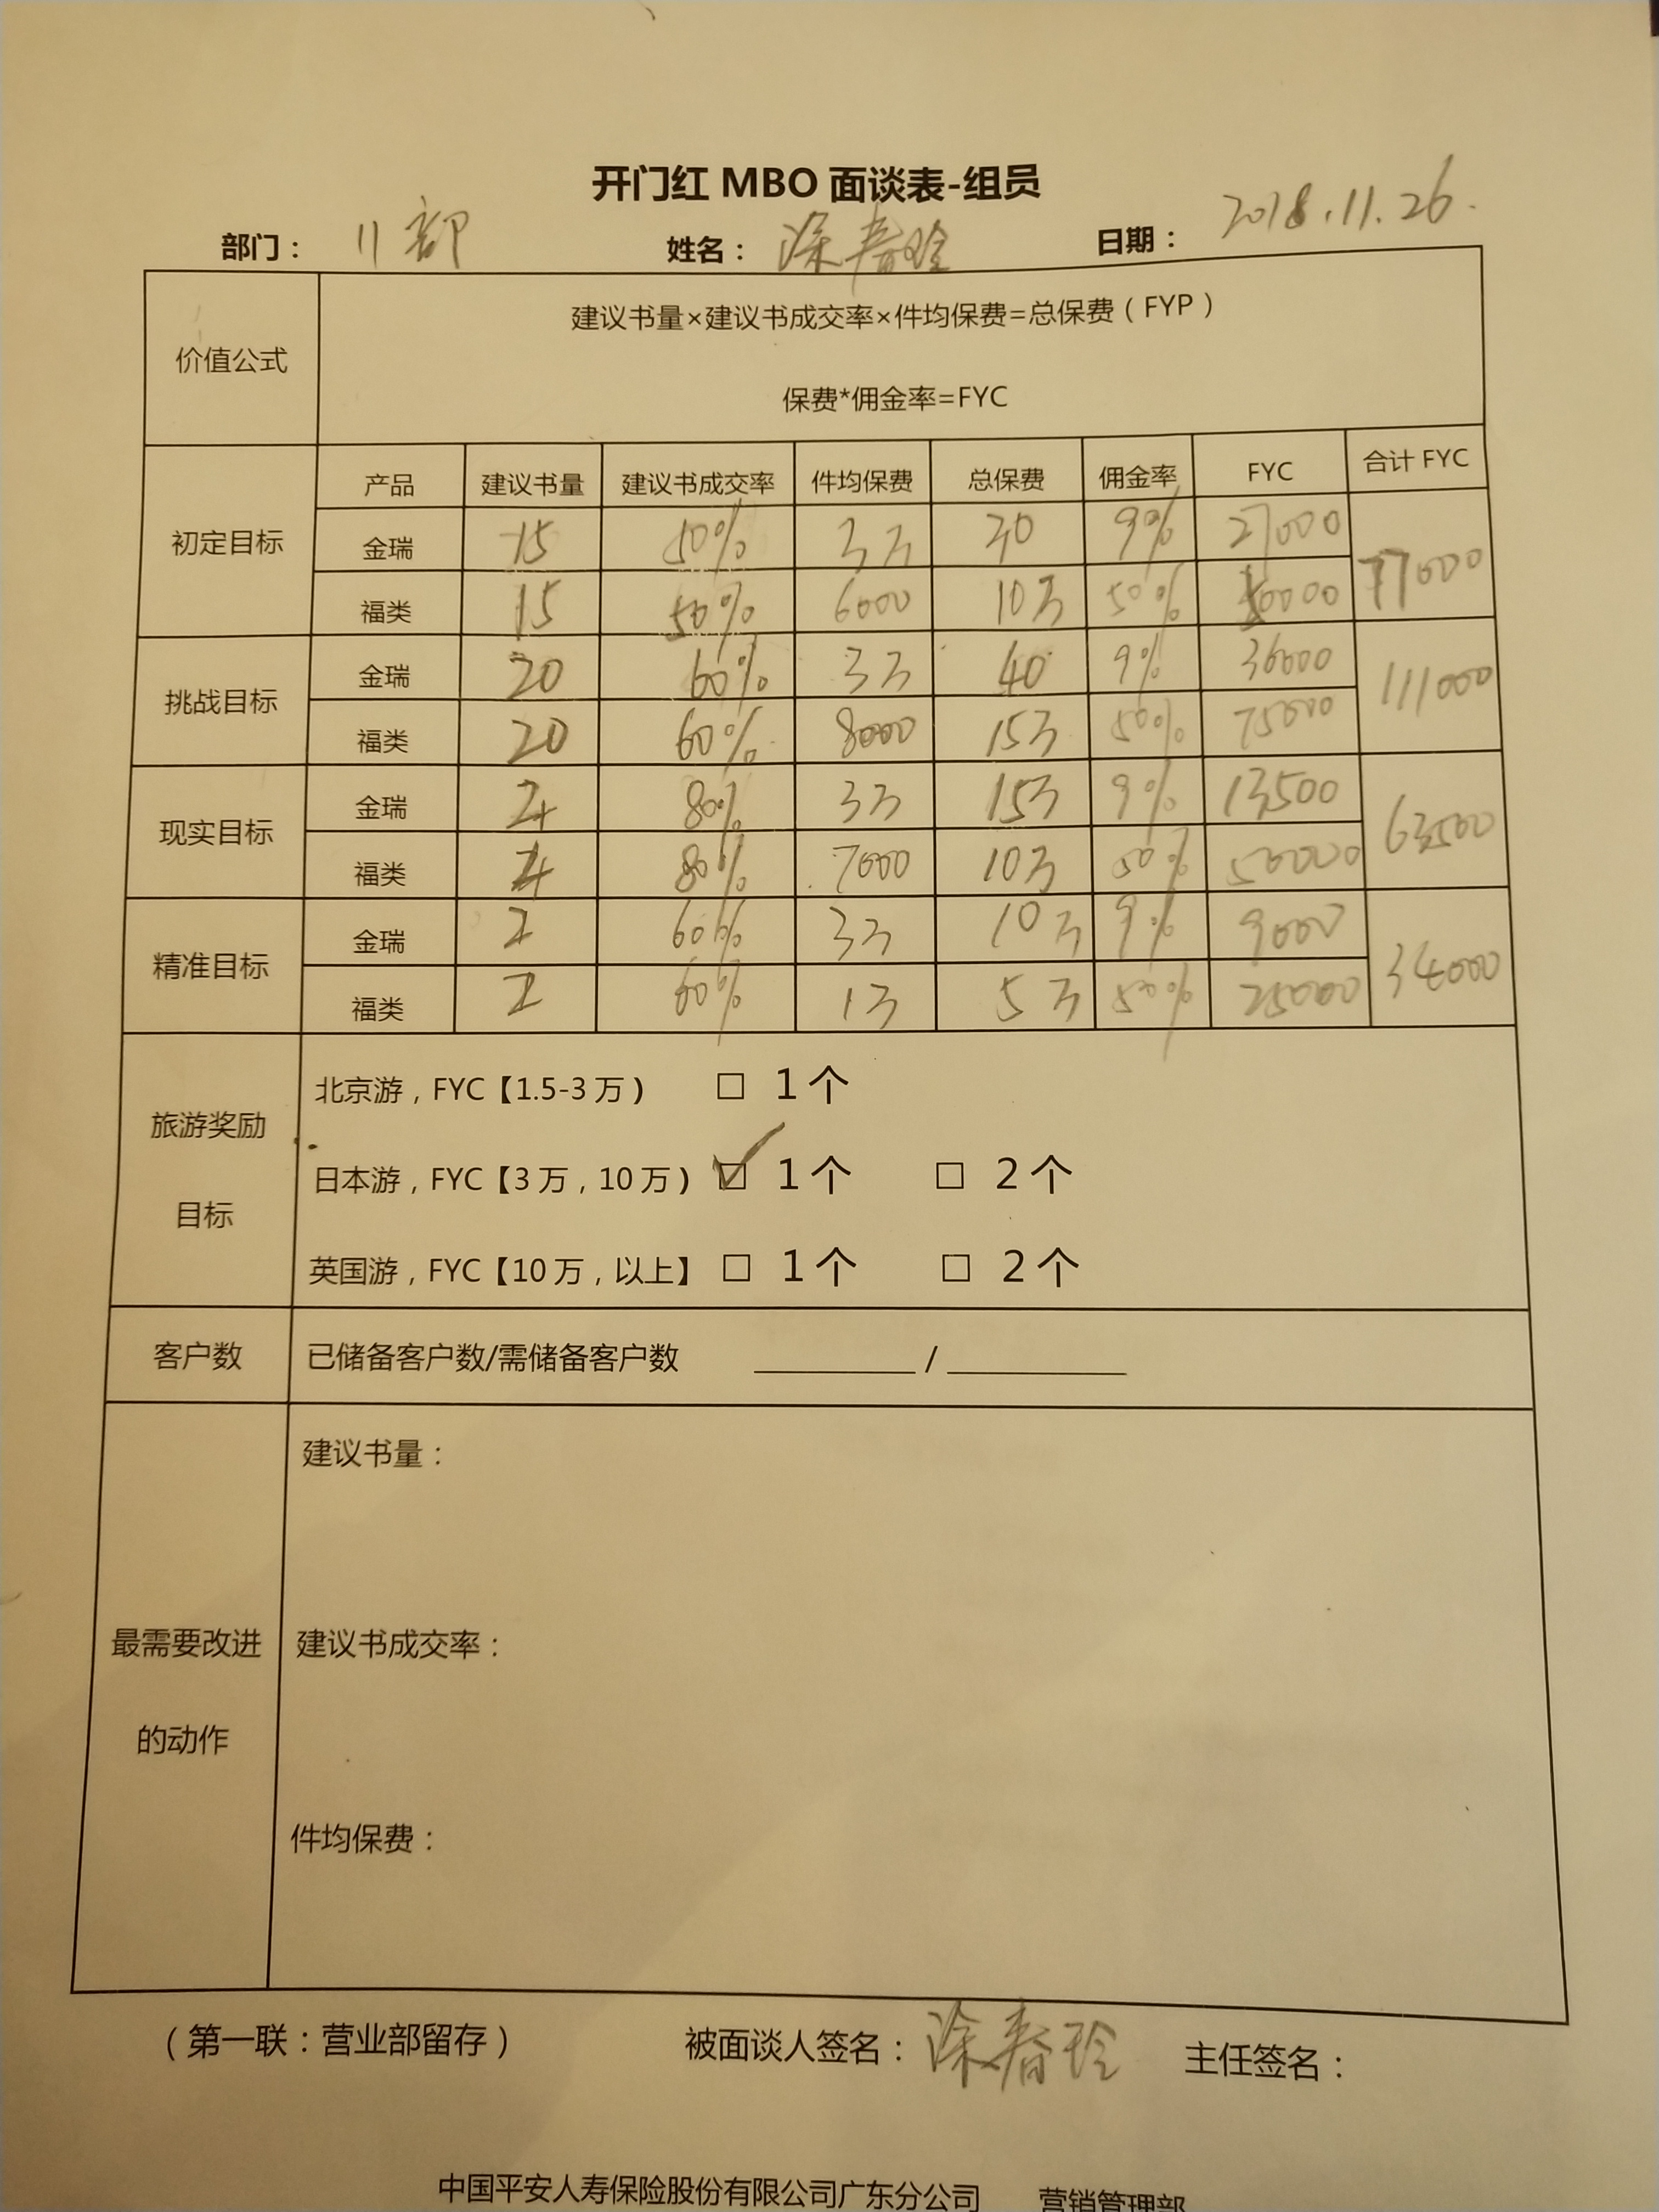 开门红 MBO 面谈表-组员
部门： 11部 姓名： 涂春玲 日期： 2018.11.26.
价值公式
建议书量×建议书成交率×件均保费=总保费（FYP）
保费*佣金率=FYC
产品 建议书量 建议书成交率 件均保费 总保费 佣金率 FYC 合计 FYC
初定目标
金瑞 15 50% 3万 30 9% 27000
77000
福类 15 50% 6000 10万 50% 50000
挑战目标
金瑞 20 60% 3万 40 9% 36000
111000
福类 20 60% 8000 15万 50% 75000
现实目标
金瑞 4 80% 3万 15万 9% 13500
63500
福类 4 80% 7000 10万 50% 50000
精准目标
金瑞 2 60% 3万 10万 9% 9000
34000
福类 2 60% 1万 5万 50% 25000
旅游奖励
目标
北京游，FYC【1.5-3 万） □ 1 个
日本游，FYC【3 万，10 万） ☑ 1 个 □ 2 个
英国游，FYC【10 万，以上】 □ 1 个 □ 2 个
客户数 已储备客户数/需储备客户数 ________ / ________
最需要改进
的动作
建议书量：
建议书成交率：
件均保费：
（第一联：营业部留存） 被面谈人签名： 涂春玲 主任签名：
中国平安人寿保险股份有限公司广东分公司 营销管理部